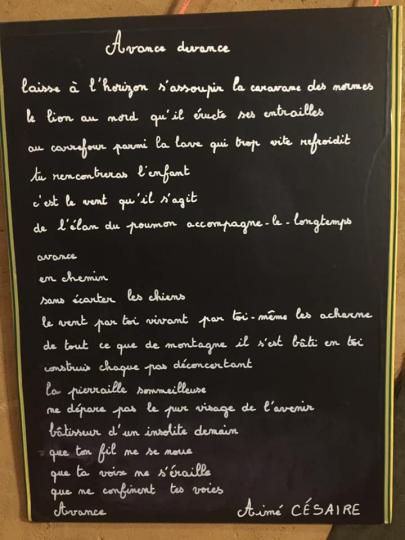 Avance devance
laisse à l'horizon s'assoupir la caravane des normes
le lion au nord qu'il éructe ses entrailles
au carrefour parmi la lave qui trop vite refroidit
tu rencontreras l'enfant
c'est le vent qu'il s'agit
de l'élan du poumon accompagne-le-longtemps
avance
en chemin
sans écarter les chiens
le vent par toi vivant par toi-même les acharne
de tout ce que de montagne il s'est bâti en toi
construis chaque pas déconcertant
la pierraille sommeilleuse
ne dépare pas le pur visage de l'avenir
bâtisseur d'un insolite demain
que ton fil ne se noue
que ta voix ne s'éraille
que ne confinent tes voies
Avance Aimé CÉSAIRE